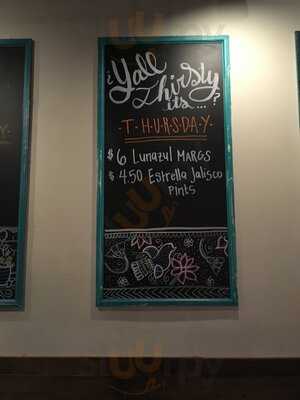 ¿Yall
Thirsty
its...?
T·H·U·R·S·D·A·Y·
$6 Lunazul MARGS
$4.50 Estrella Jalisco
Pints